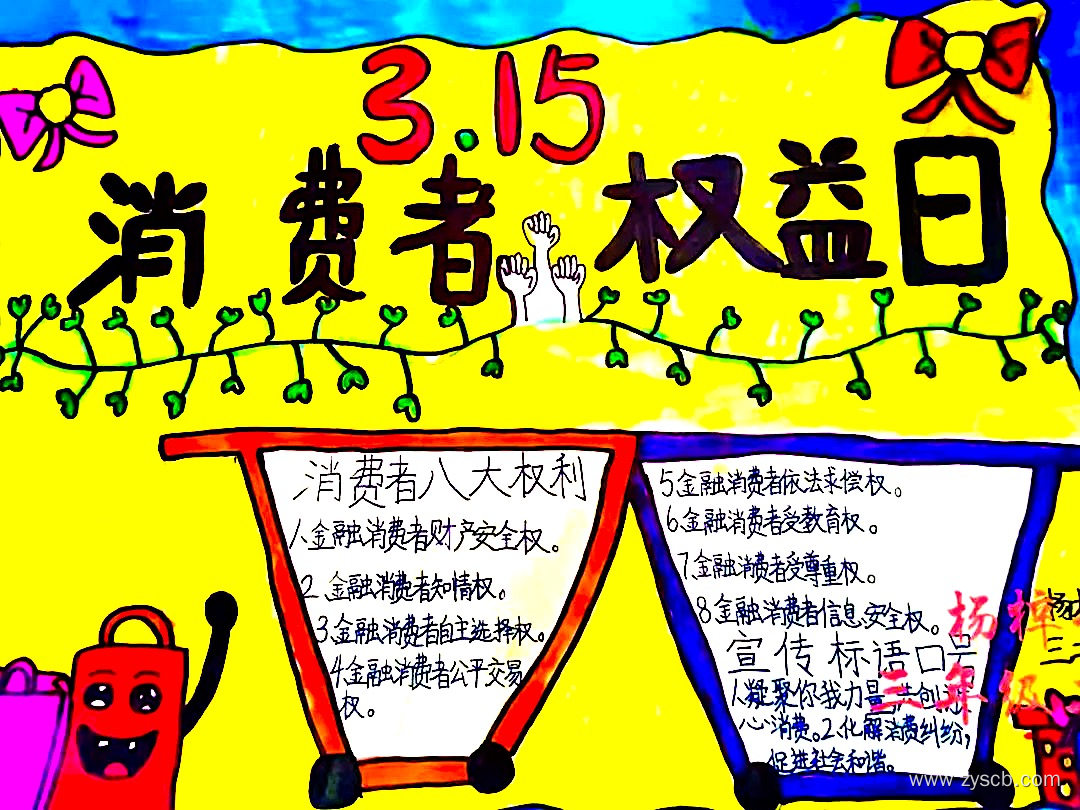 3.15
消费者权益日
消费者八大权利
1.金融消费者财产安全权。
2.金融消费者知情权。
3.金融消费者自主选择权。
4.金融消费者公平交易
权。
5金融消费者依法求偿权。
6.金融消费者受教育权。
7.金融消费者受尊重权。
8.金融消费者信息安全权。
宣传标语口号
1.凝聚你我力量共创
心消费。2.化解消费纠纷,
促进社会和谐。
杨梓
三年级
www.zyscb.com